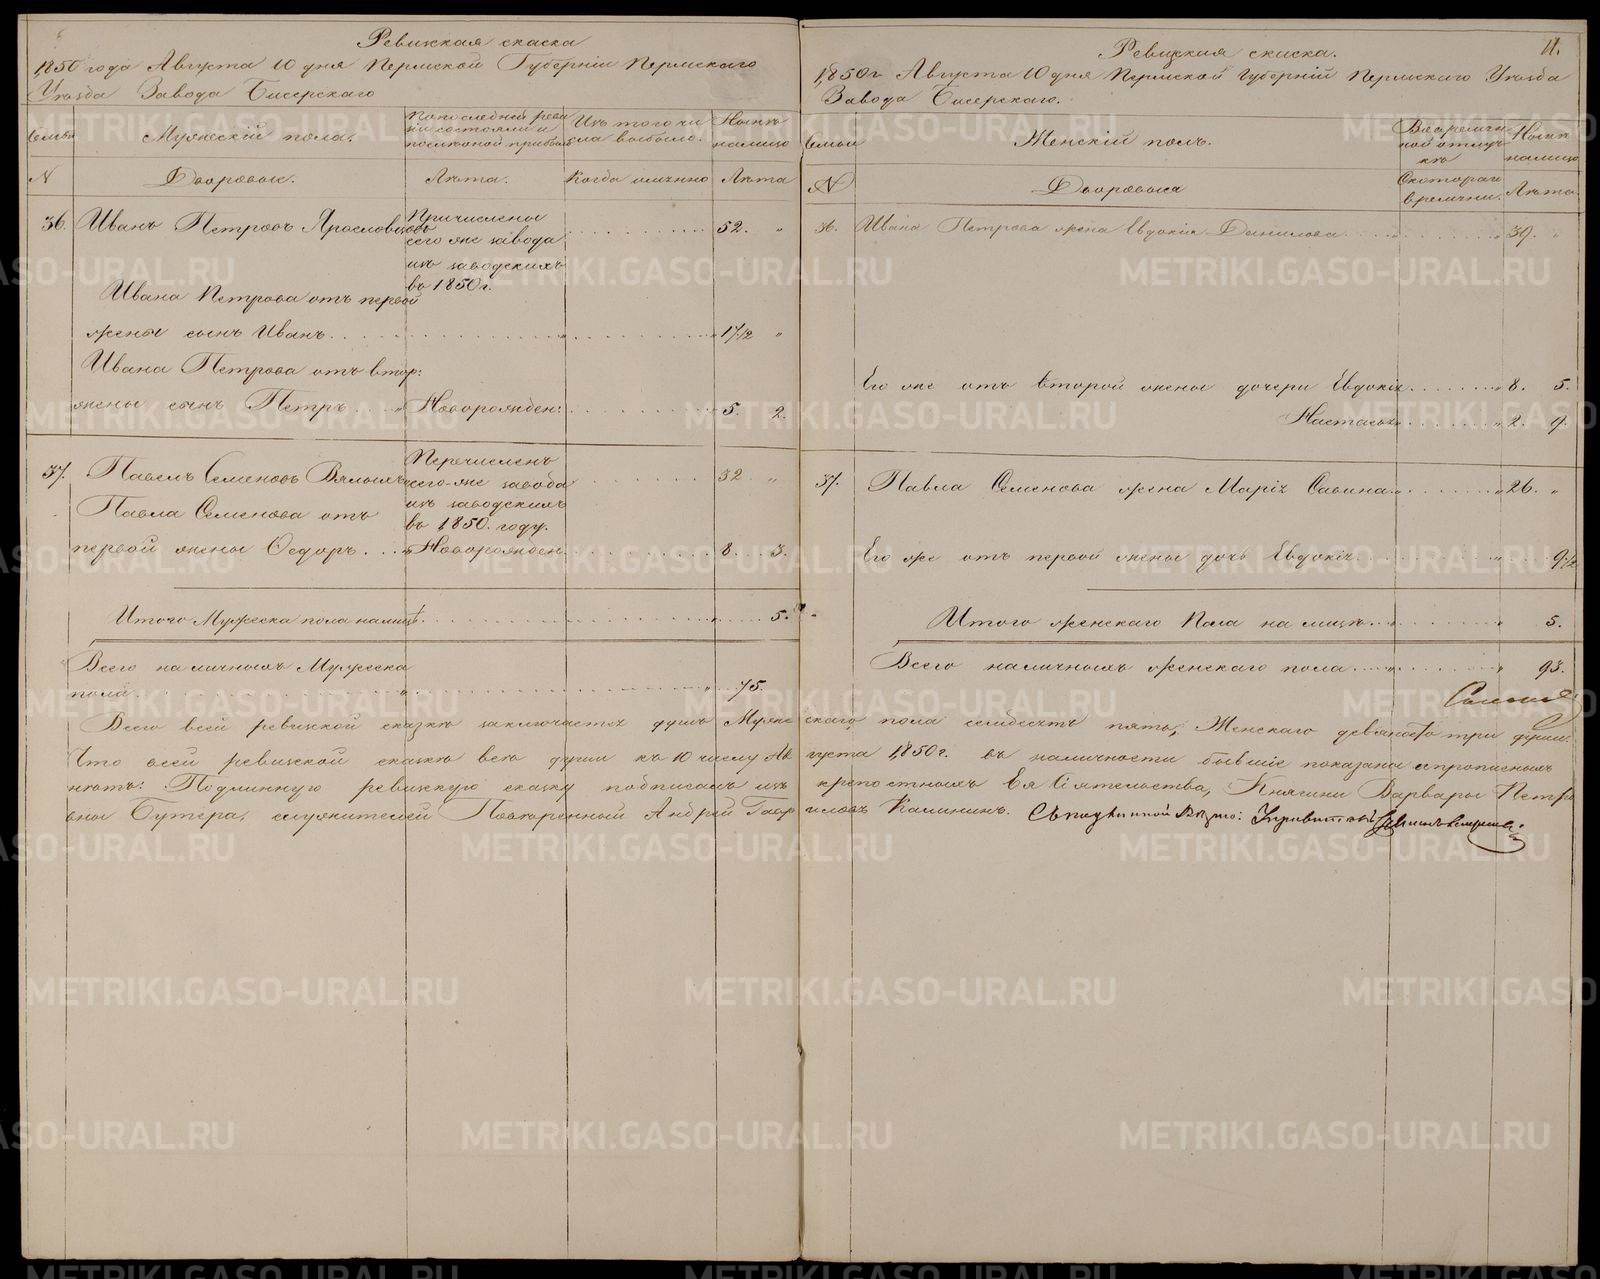 Ревизская скаска
1850 года Августа 10 дня Пермской Губерніи Пермскаго
Уѣзда Завода Бисерскаго
Семьи
Мужескій полъ.
По последней реви
зіи состояли и
после оной прибыло
Изъ того чи
сла выбыло.
Нынѣ
налицо
N
Дворовые.
Лѣта.
Когда именно
Лѣта
36. Иванъ Петровъ Ярославцовъ
Причислены
сего же завода
изъ заводскихъ
въ 1850 г.
52. "
Ивана Петрова отъ первой
жены сынъ Иванъ 17 1/2 "
Ивана Петрова отъ втор:
жены сынъ Петръ Новорожден: 5. 2.
37. Павелъ Семеновъ Вялыхъ
Перечисленъ
сего-же завода
изъ заводскихъ
въ 1850. году.
32 "
Павла Семенова отъ
первой жены Ѳедоръ Новорожден. 8 3.
Итого Мужеска пола налицѣ 5.
Всего наличныхъ Мужеска
пола 75.
Ревизская скаска. 11.
1850 г Августа 10 дня Пермской Губерніи Пермскаго Уѣзда
Завода Бисерскаго.
Семьи
Женскій полъ.
Во времен
ной отлуч
кѣ
Нынѣ
налицо
N
Дворовыя
С котораго
времени.
Лѣта.
36. Ивана Петрова жена Евдокія Данилова 39. "
Его же отъ второй жены дочери Евдокія 8. 5.
Настасья 2. 9.
37. Павла Семенова жена Марія Савина 26. "
Его же отъ первой жены дочь Евдокія 9 1/2
Итого женскаго Пола на лицѣ 5.
Всего наличныхъ женскаго пола 93.
Всего всей ревизской сказкѣ заключается душъ Мужескаго пола семьдесятъ пять, Женскаго девяносто три души.
Что всей ревизской сказкѣ все души къ 10 числу Августа 1850 г. въ наличности бывшіе показаны и прописныхъ
нѣтъ: Подлинную ревизскую сказку подписалъ изъ крепостныхъ Ея Сіятельства, Княгини Варвары Петро
вны Бутера, служителей Повѣренный Андрей Гавриловъ Калининъ. Съ подлинной вѣрно:
METRIKI.GASO-URAL.RU